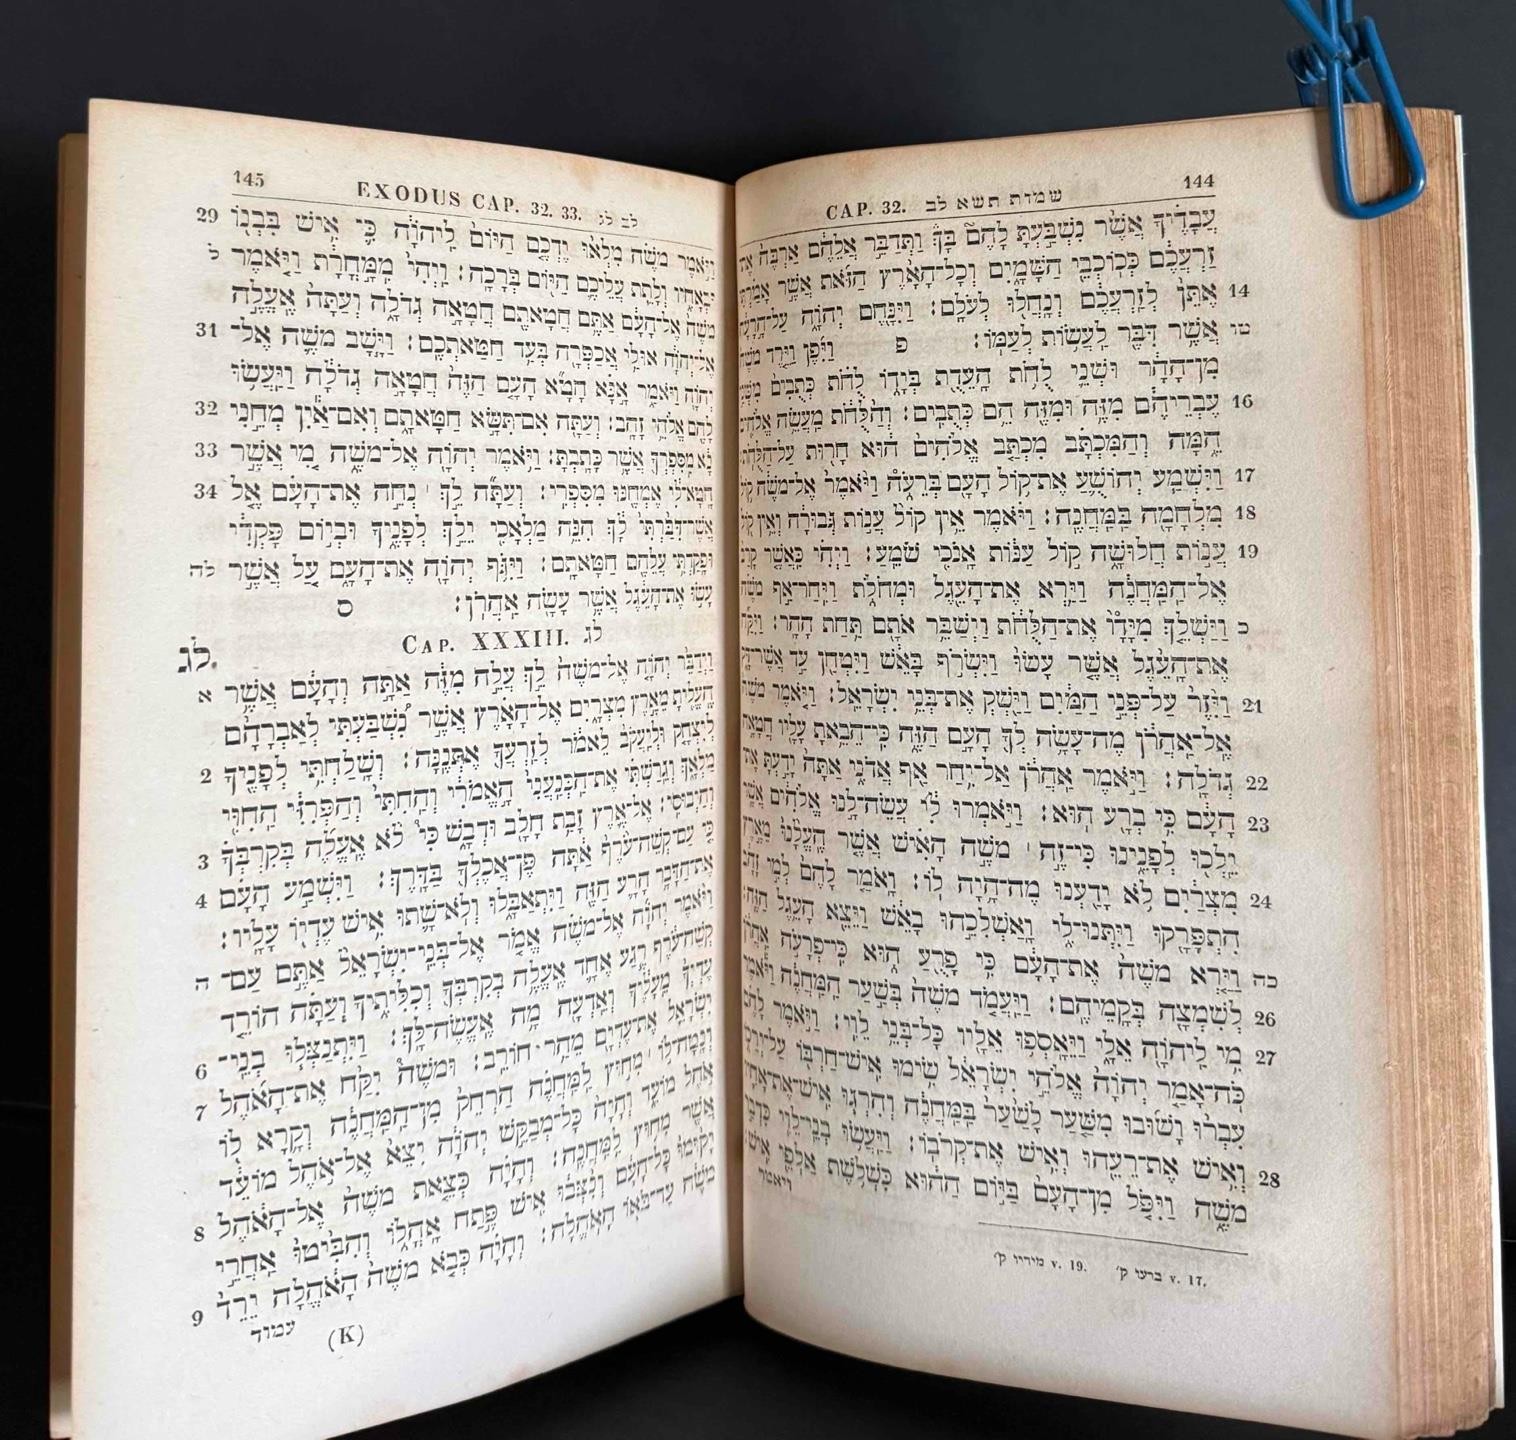 144 שמות תשא לב CAP. 32.
עֲבָדֶיךָ אֲשֶׁר נִשְׁבַּעְתָּ לָהֶם בָּךְ וַתְּדַבֵּר אֲלֵהֶם אַרְבֶּה אֶת־
זַרְעֲכֶם כְּכוֹכְבֵי הַשָּׁמָיִם וְכָל־הָאָרֶץ הַזֹּאת אֲשֶׁר אָמַרְתִּי
14 אֶתֵּן לְזַרְעֲכֶם וְנָחֲלוּ לְעֹלָם׃ וַיִּנָּחֶם יְהוָֹה עַל־הָרָעָה
טו אֲשֶׁר דִּבֶּר לַעֲשׂוֹת לְעַמּוֹ׃ פ וַיִּפֶן וַיֵּרֶד מֹשֶׁה
מִן־הָהָר וּשְׁנֵי לֻחֹת הָעֵדֻת בְּיָדוֹ לֻחֹת כְּתֻבִים מִשְּׁנֵי
16 עֶבְרֵיהֶם מִזֶּה וּמִזֶּה הֵם כְּתֻבִים׃ וְהַלֻּחֹת מַעֲשֵׂה אֱלֹהִים
הֵמָּה וְהַמִּכְתָּב מִכְתַּב אֱלֹהִים הוּא חָרוּת עַל־הַלֻּחֹת׃
17 וַיִּשְׁמַע יְהוֹשֻׁעַ אֶת־קוֹל הָעָם בְּרֵעֹה וַיֹּאמֶר אֶל־מֹשֶׁה קוֹל
18 מִלְחָמָה בַּמַּחֲנֶה׃ וַיֹּאמֶר אֵין קוֹל עֲנוֹת גְּבוּרָה וְאֵין קוֹל
19 עֲנוֹת חֲלוּשָׁה קוֹל עַנּוֹת אָנֹכִי שֹׁמֵעַ׃ וַיְהִי כַּאֲשֶׁר קָרַב
אֶל־הַמַּחֲנֶה וַיַּרְא אֶת־הָעֵגֶל וּמְחֹלֹת וַיִּחַר־אַף מֹשֶׁה
כ וַיַּשְׁלֵךְ מִיָּדָו אֶת־הַלֻּחֹת וַיְשַׁבֵּר אֹתָם תַּחַת הָהָר׃ וַיִּקַּח
אֶת־הָעֵגֶל אֲשֶׁר עָשׂוּ וַיִּשְׂרֹף בָּאֵשׁ וַיִּטְחַן עַד אֲשֶׁר־דָּק
21 וַיִּזֶר עַל־פְּנֵי הַמַּיִם וַיַּשְׁקְ אֶת־בְּנֵי יִשְׂרָאֵל׃ וַיֹּאמֶר מֹשֶׁה
אֶל־אַהֲרֹן מֶה־עָשָׂה לְךָ הָעָם הַזֶּה כִּי־הֵבֵאתָ עָלָיו חֲטָאָה
22 גְדֹלָה׃ וַיֹּאמֶר אַהֲרֹן אַל־יִחַר אַף אֲדֹנִי אַתָּה יָדַעְתָּ אֶת־
23 הָעָם כִּי בְרָע הוּא׃ וַיֹּאמְרוּ לִי עֲשֵׂה־לָנוּ אֱלֹהִים אֲשֶׁר
יֵלְכוּ לְפָנֵינוּ כִּי־זֶה ׀ מֹשֶׁה הָאִישׁ אֲשֶׁר הֶעֱלָנוּ מֵאֶרֶץ
24 מִצְרַיִם לֹא יָדַעְנוּ מֶה־הָיָה לוֹ׃ וָאֹמַר לָהֶם לְמִי זָהָב
הִתְפָּרָקוּ וַיִּתְּנוּ־לִי וָאַשְׁלִכֵהוּ בָאֵשׁ וַיֵּצֵא הָעֵגֶל הַזֶּה׃
כה וַיַּרְא מֹשֶׁה אֶת־הָעָם כִּי פָרֻעַ הוּא כִּי־פְרָעֹה אַהֲרֹן
26 לְשִׁמְצָה בְּקָמֵיהֶם׃ וַיַּעֲמֹד מֹשֶׁה בְּשַׁעַר הַמַּחֲנֶה וַיֹּאמֶר
27 מִי לַיהוָֹה אֵלָי וַיֵּאָסְפוּ אֵלָיו כָּל־בְּנֵי לֵוִי׃ וַיֹּאמֶר לָהֶם
כֹּה־אָמַר יְהוָֹה אֱלֹהֵי יִשְׂרָאֵל שִׂימוּ אִישׁ־חַרְבּוֹ עַל־יְרֵכוֹ
עִבְרוּ וָשׁוּבוּ מִשַּׁעַר לָשַׁעַר בַּמַּחֲנֶה וְהִרְגוּ אִישׁ־אֶת־אָחִיו
28 וְאִישׁ אֶת־רֵעֵהוּ וְאִישׁ אֶת־קְרֹבוֹ׃ וַיַּעֲשׂוּ בְנֵי־לֵוִי כִּדְבַר
מֹשֶׁה וַיִּפֹּל מִן־הָעָם בַּיּוֹם הַהוּא כִּשְׁלֹשֶׁת אַלְפֵי אִישׁ׃
ויאמר
v. 17. ברעו ק' v. 19. מידיו ק'
145 EXODUS CAP. 32. 33. לב לג
29 וַיֹּאמֶר מֹשֶׁה מִלְאוּ יֶדְכֶם הַיּוֹם לַיהוָֹה כִּי אִישׁ בִּבְנוֹ
ל וּבְאָחִיו וְלָתֵת עֲלֵיכֶם הַיּוֹם בְּרָכָה׃ וַיְהִי מִמָּחֳרָת וַיֹּאמֶר
מֹשֶׁה אֶל־הָעָם אַתֶּם חֲטָאתֶם חֲטָאָה גְדֹלָה וְעַתָּה אֶעֱלֶה
31 אֶל־יְהוָֹה אוּלַי אֲכַפְּרָה בְּעַד חַטַּאתְכֶם׃ וַיָּשָׁב מֹשֶׁה אֶל־
יְהוָֹה וַיֹּאמַר אָנָּא חָטָא הָעָם הַזֶּה חֲטָאָה גְדֹלָה וַיַּעֲשׂוּ
32 לָהֶם אֱלֹהֵי זָהָב׃ וְעַתָּה אִם־תִּשָּׂא חַטָּאתָם וְאִם־אַיִן מְחֵנִי
33 נָא מִסִּפְרְךָ אֲשֶׁר כָּתָבְתָּ׃ וַיֹּאמֶר יְהוָֹה אֶל־מֹשֶׁה מִי אֲשֶׁר
34 חָטָא־לִי אֶמְחֶנּוּ מִסִּפְרִי׃ וְעַתָּה לֵךְ ׀ נְחֵה אֶת־הָעָם אֶל
אֲשֶׁר־דִּבַּרְתִּי לָךְ הִנֵּה מַלְאָכִי יֵלֵךְ לְפָנֶיךָ וּבְיוֹם פָּקְדִי
לה וּפָקַדְתִּי עֲלֵהֶם חַטָּאתָם׃ וַיִּגֹּף יְהוָֹה אֶת־הָעָם עַל אֲשֶׁר
עָשׂוּ אֶת־הָעֵגֶל אֲשֶׁר עָשָׂה אַהֲרֹן׃ ס
CAP. XXXIII. לג
לג.
א וַיְדַבֵּר יְהוָֹה אֶל־מֹשֶׁה לֵךְ עֲלֵה מִזֶּה אַתָּה וְהָעָם אֲשֶׁר
הֶעֱלִיתָ מֵאֶרֶץ מִצְרָיִם אֶל־הָאָרֶץ אֲשֶׁר נִשְׁבַּעְתִּי לְאַבְרָהָם
2 לְיִצְחָק וּלְיַעֲקֹב לֵאמֹר לְזַרְעֲךָ אֶתְּנֶנָּה׃ וְשָׁלַחְתִּי לְפָנֶיךָ
מַלְאָךְ וְגֵרַשְׁתִּי אֶת־הַכְּנַעֲנִי הָאֱמֹרִי וְהַחִתִּי וְהַפְּרִזִּי הַחִוִּי
3 וְהַיְבוּסִי׃ אֶל־אֶרֶץ זָבַת חָלָב וּדְבָשׁ כִּי לֹא אֶעֱלֶה בְּקִרְבְּךָ
4 כִּי עַם־קְשֵׁה־עֹרֶף אַתָּה פֶּן־אֲכֶלְךָ בַּדָּרֶךְ׃ וַיִּשְׁמַע הָעָם
אֶת־הַדָּבָר הָרָע הַזֶּה וַיִּתְאַבָּלוּ וְלֹא־שָׁתוּ אִישׁ עֶדְיוֹ עָלָיו׃
ה וַיֹּאמֶר יְהוָֹה אֶל־מֹשֶׁה אֱמֹר אֶל־בְּנֵי־יִשְׂרָאֵל אַתֶּם עַם־
קְשֵׁה־עֹרֶף רֶגַע אֶחָד אֶעֱלֶה בְקִרְבְּךָ וְכִלִּיתִיךָ וְעַתָּה הוֹרֵד
6 עֶדְיְךָ מֵעָלֶיךָ וְאֵדְעָה מָה אֶעֱשֶׂה־לָּךְ׃ וַיִּתְנַצְּלוּ בְנֵי־
7 יִשְׂרָאֵל אֶת־עֶדְיָם מֵהַר חוֹרֵב׃ וּמֹשֶׁה יִקַּח אֶת־הָאֹהֶל
וְנָטָה־לוֹ ׀ מִחוּץ לַמַּחֲנֶה הַרְחֵק מִן־הַמַּחֲנֶה וְקָרָא לוֹ
אֹהֶל מוֹעֵד וְהָיָה כָּל־מְבַקֵּשׁ יְהוָֹה יֵצֵא אֶל־אֹהֶל מוֹעֵד
8 אֲשֶׁר מִחוּץ לַמַּחֲנֶה׃ וְהָיָה כְּצֵאת מֹשֶׁה אֶל־הָאֹהֶל
יָקוּמוּ כָּל־הָעָם וְנִצְּבוּ אִישׁ פֶּתַח אָהֳלוֹ וְהִבִּיטוּ אַחֲרֵי
9 מֹשֶׁה עַד־בֹּאוֹ הָאֹהֱלָה׃ וְהָיָה כְּבֹא מֹשֶׁה הָאֹהֱלָה יֵרֵד
עמוד
(K)